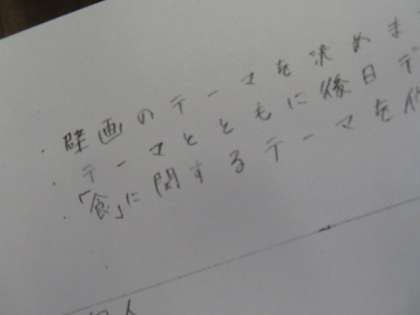 ・壁画のテーマを決めま
・テーマとともに後日デ
・「食」に関するテーマを
人